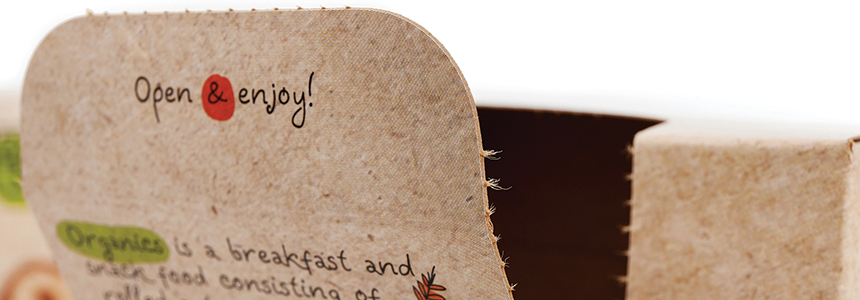 Open & enjoy!
Organics is a breakfast and
snack food consisting of